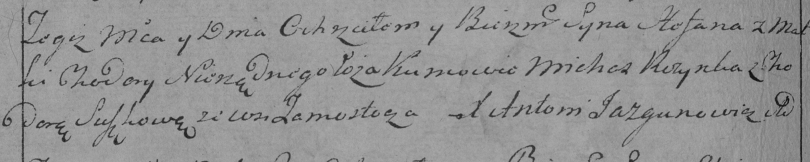 Tegoż Mca y Dnia Ochrzciłem y Bierzm Syna Stefana z Mat
ki Chodory Nierządnego łoża Kumowie Michał z Cho
dorą Suszkową ze wsi Zamostocza X Antoni Jazgunowicz